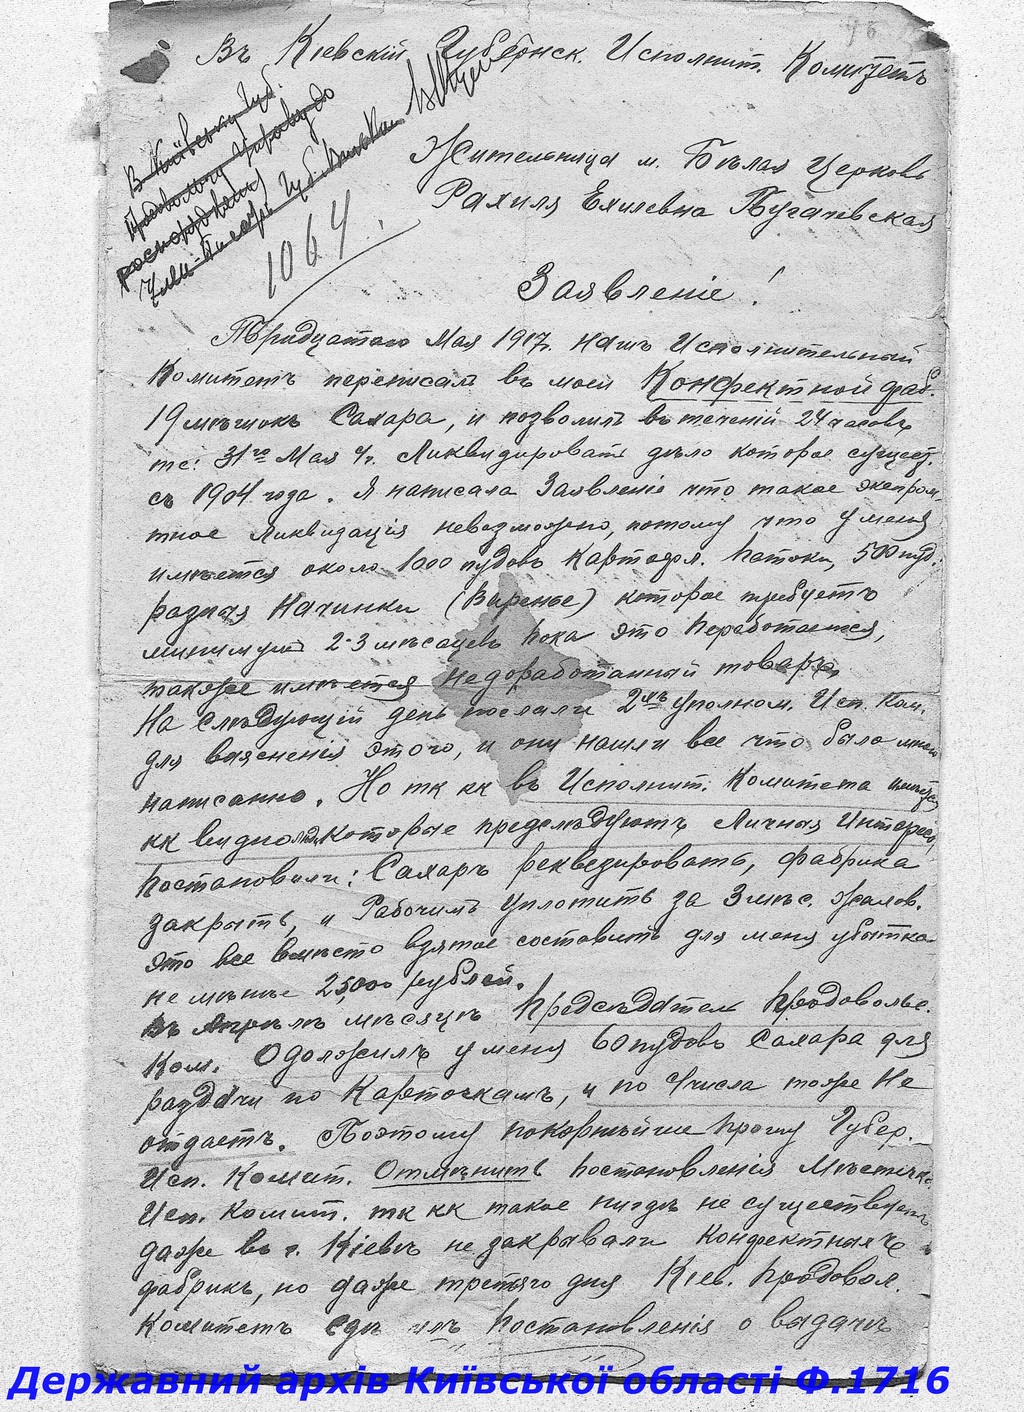 Въ Кіевскій Губернск. Исполнит. Комитетъ
В Київську Губ.
Продовольчу Управу до
1064
Жительница м. Бѣлая Церковь
Рахиля Ехилевна Пугачевская
Заявленіе!
Тридцатаго Мая 1917г. нашъ Исполнительный
Комитетъ переписал въ моей Конфектной фаб.
19 мѣшокъ Сахара, и позволилъ въ теченій 24 часовъ
те: 31го Мая ч/г. Ликвидировать дѣло которое сущест.
съ 1904 года. Я написала Заявленіе что такое экспром-
тное Ликвидація невозможно, потому что у меня
имѣется около 1000 пудовъ Картофл. Патоки, 500 пуд.
разная Начинки (Варенье) которое требуетъ
минимумъ 2-3 мѣсяцевъ пока это переботается,
также имѣется недоработанный товаръ.
На слѣдующій день послали 2хъ уполном. Исп. Ком.
для выясненія этого, и они нашли все что было мною
написанно. Но тк кк въ Исполнит. Комитета имѣются
кк видно которые предслѣдуютъ Личная Интересы,
Постановили: Сахаръ реквезировать, фабрика
закрыть, и Рабочимъ Уплотить за 3 мѣс. жалов.
Это все вмѣсто взятое составитъ для меня убытка
не мѣньше 25,000 рублей.
Въ Апрѣлѣ мѣсяцѣ Предсѣдатель Продовольс.
Ком. Одолжилъ у меня 60 пудовъ Сахара для
раздачи по Карточкамъ, и по Числа тоже Не
отдаетъ. Поэтому покорнѣйше прошу Губер.
Исп. Комит. Отмѣнить постановленія Мѣстечк.
Исп. Комит. тк кк такое нигдѣ не существуетъ
даже въ г. Кіевѣ не закрывали Конфектныхъ
фабрикъ, но даже третяго дня Кіев. Продовол.
Комитетъ сдѣ лъ Постановленія о выдачѣ
Державний архів Київської області Ф.1716